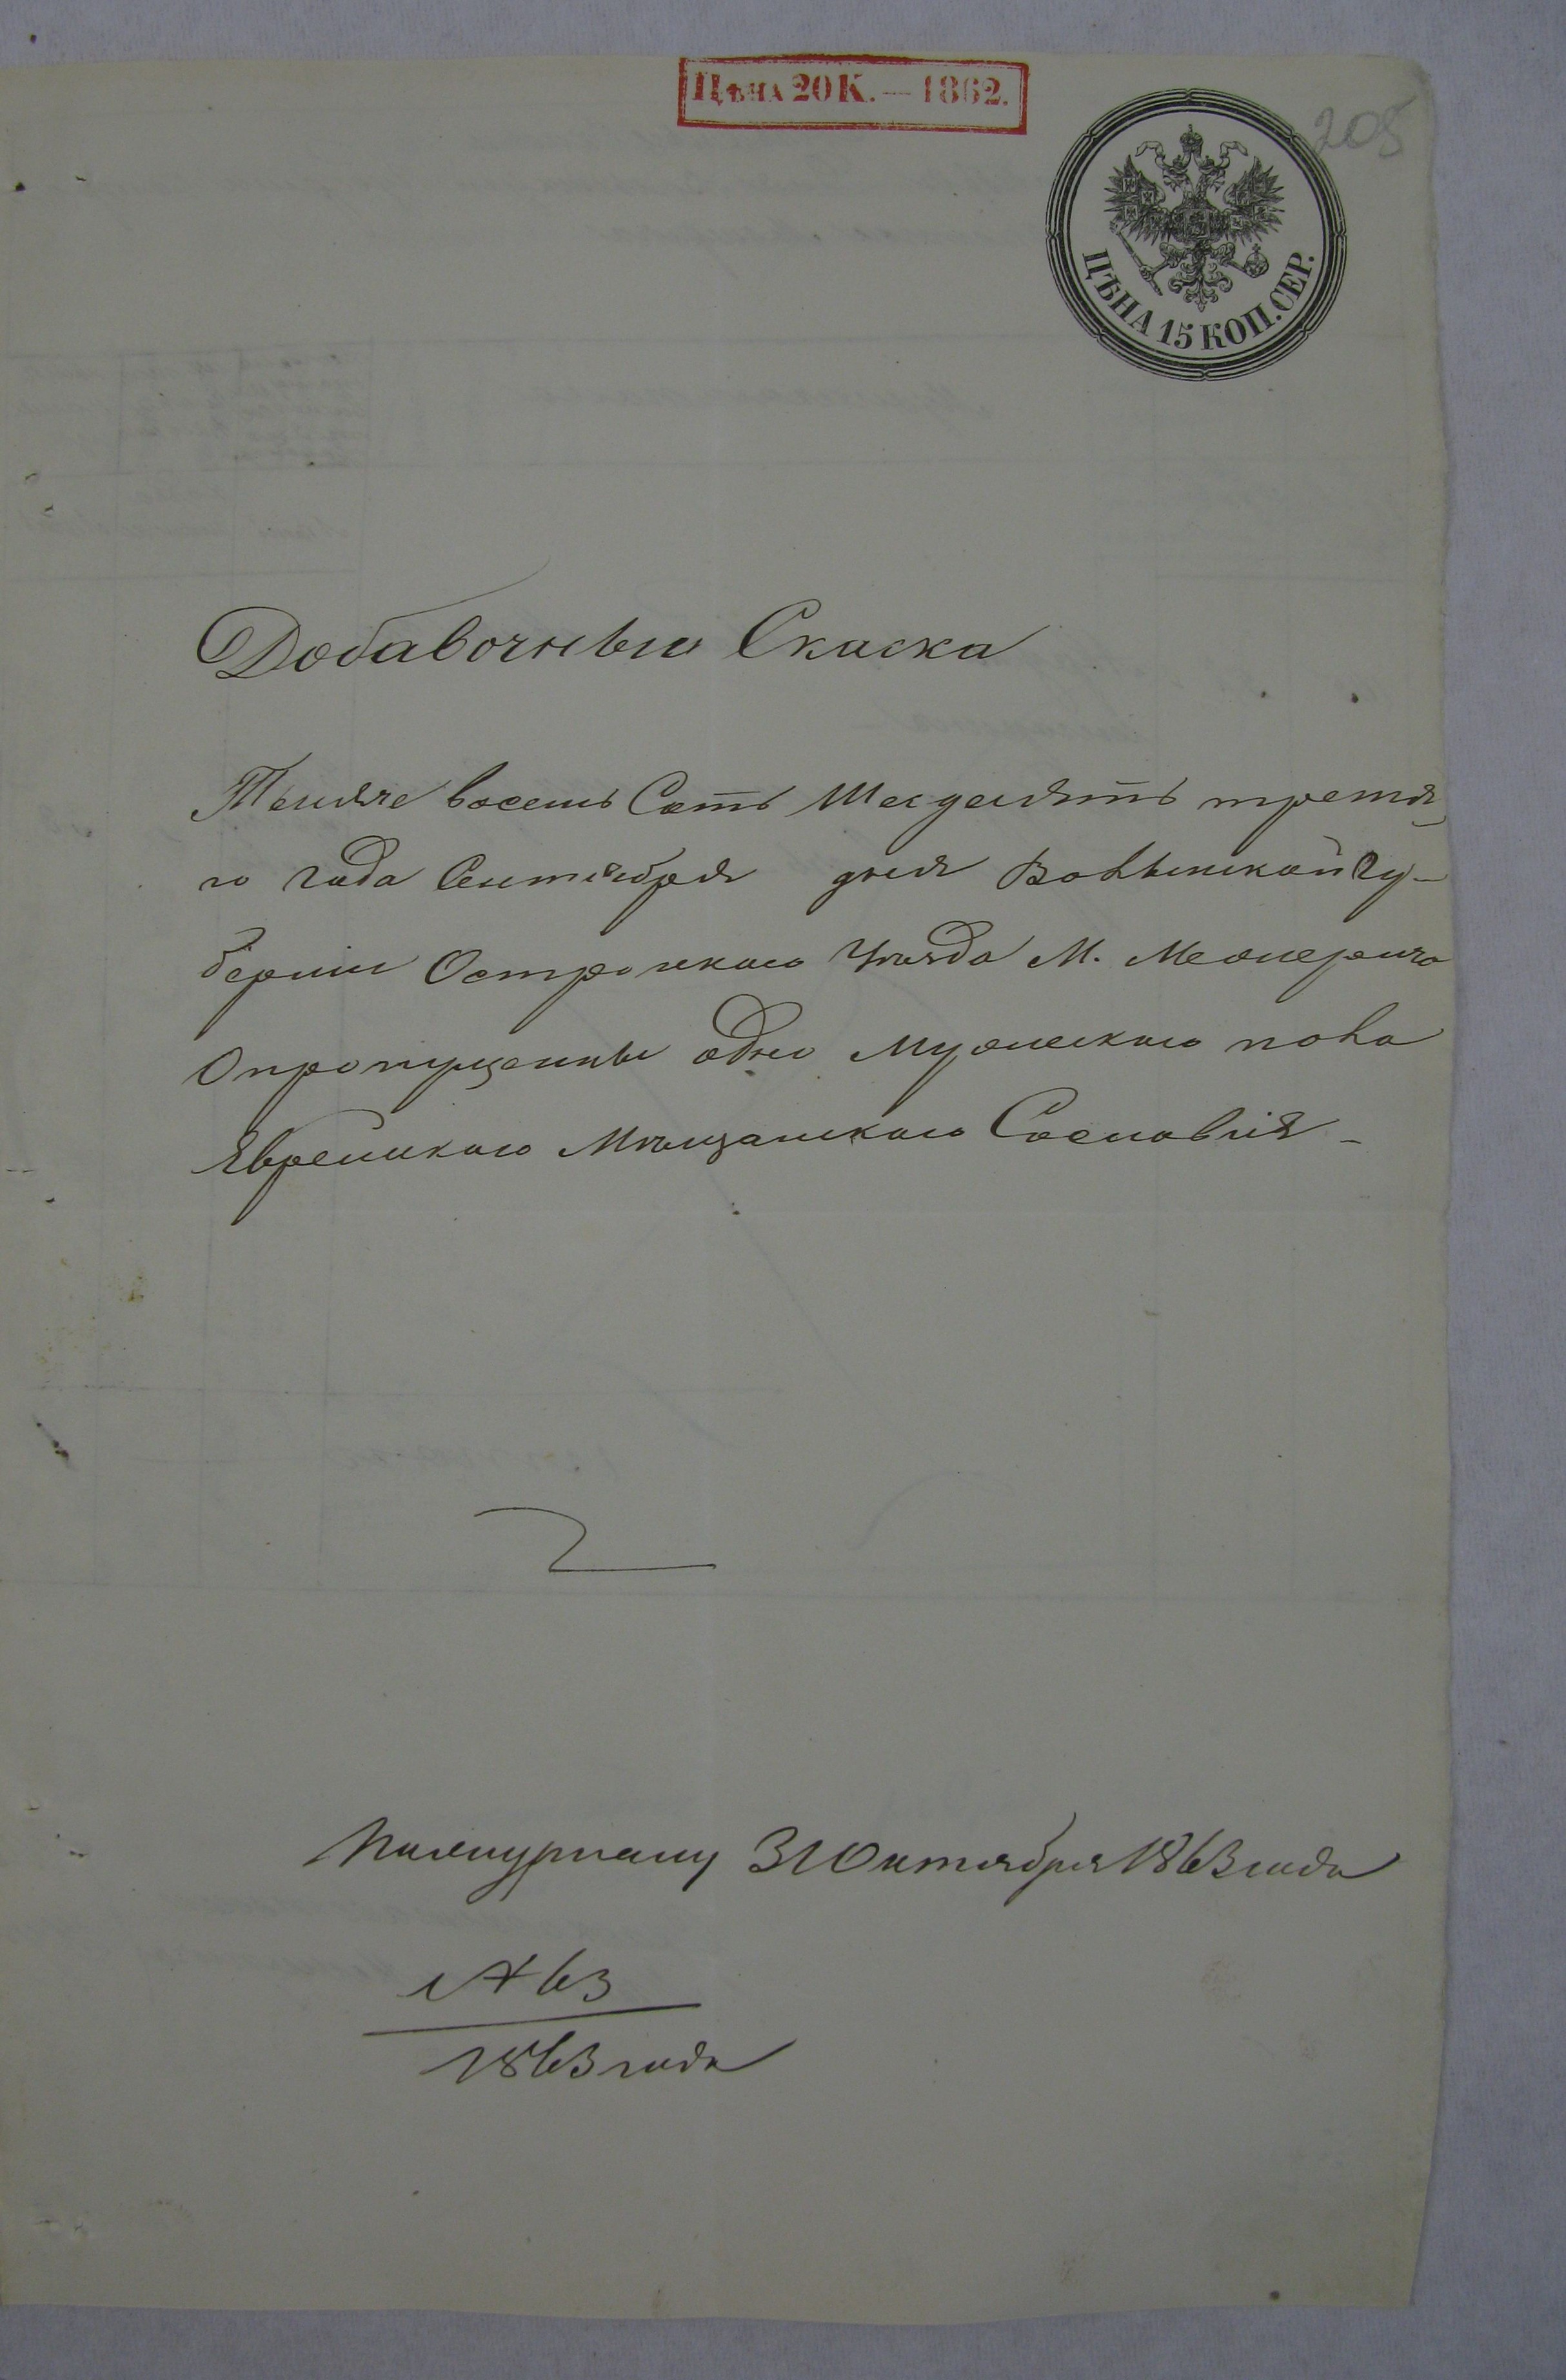 Цѣна 20 К. — 1862.
205
ЦѢНА 15 КОП. СЕР.
Добавочныя Скаска
Тысяче восемь Сотъ Шесдесятъ третя
го года Сентября дня Волынской Гу-
берніи Острожкаго Уѣзда М. Межерича
О пропущенны одно мужескаго пола
Яврейскаго Мѣщанскаго Сословія -
31 Октября 1863 года
№ 63
1863 года